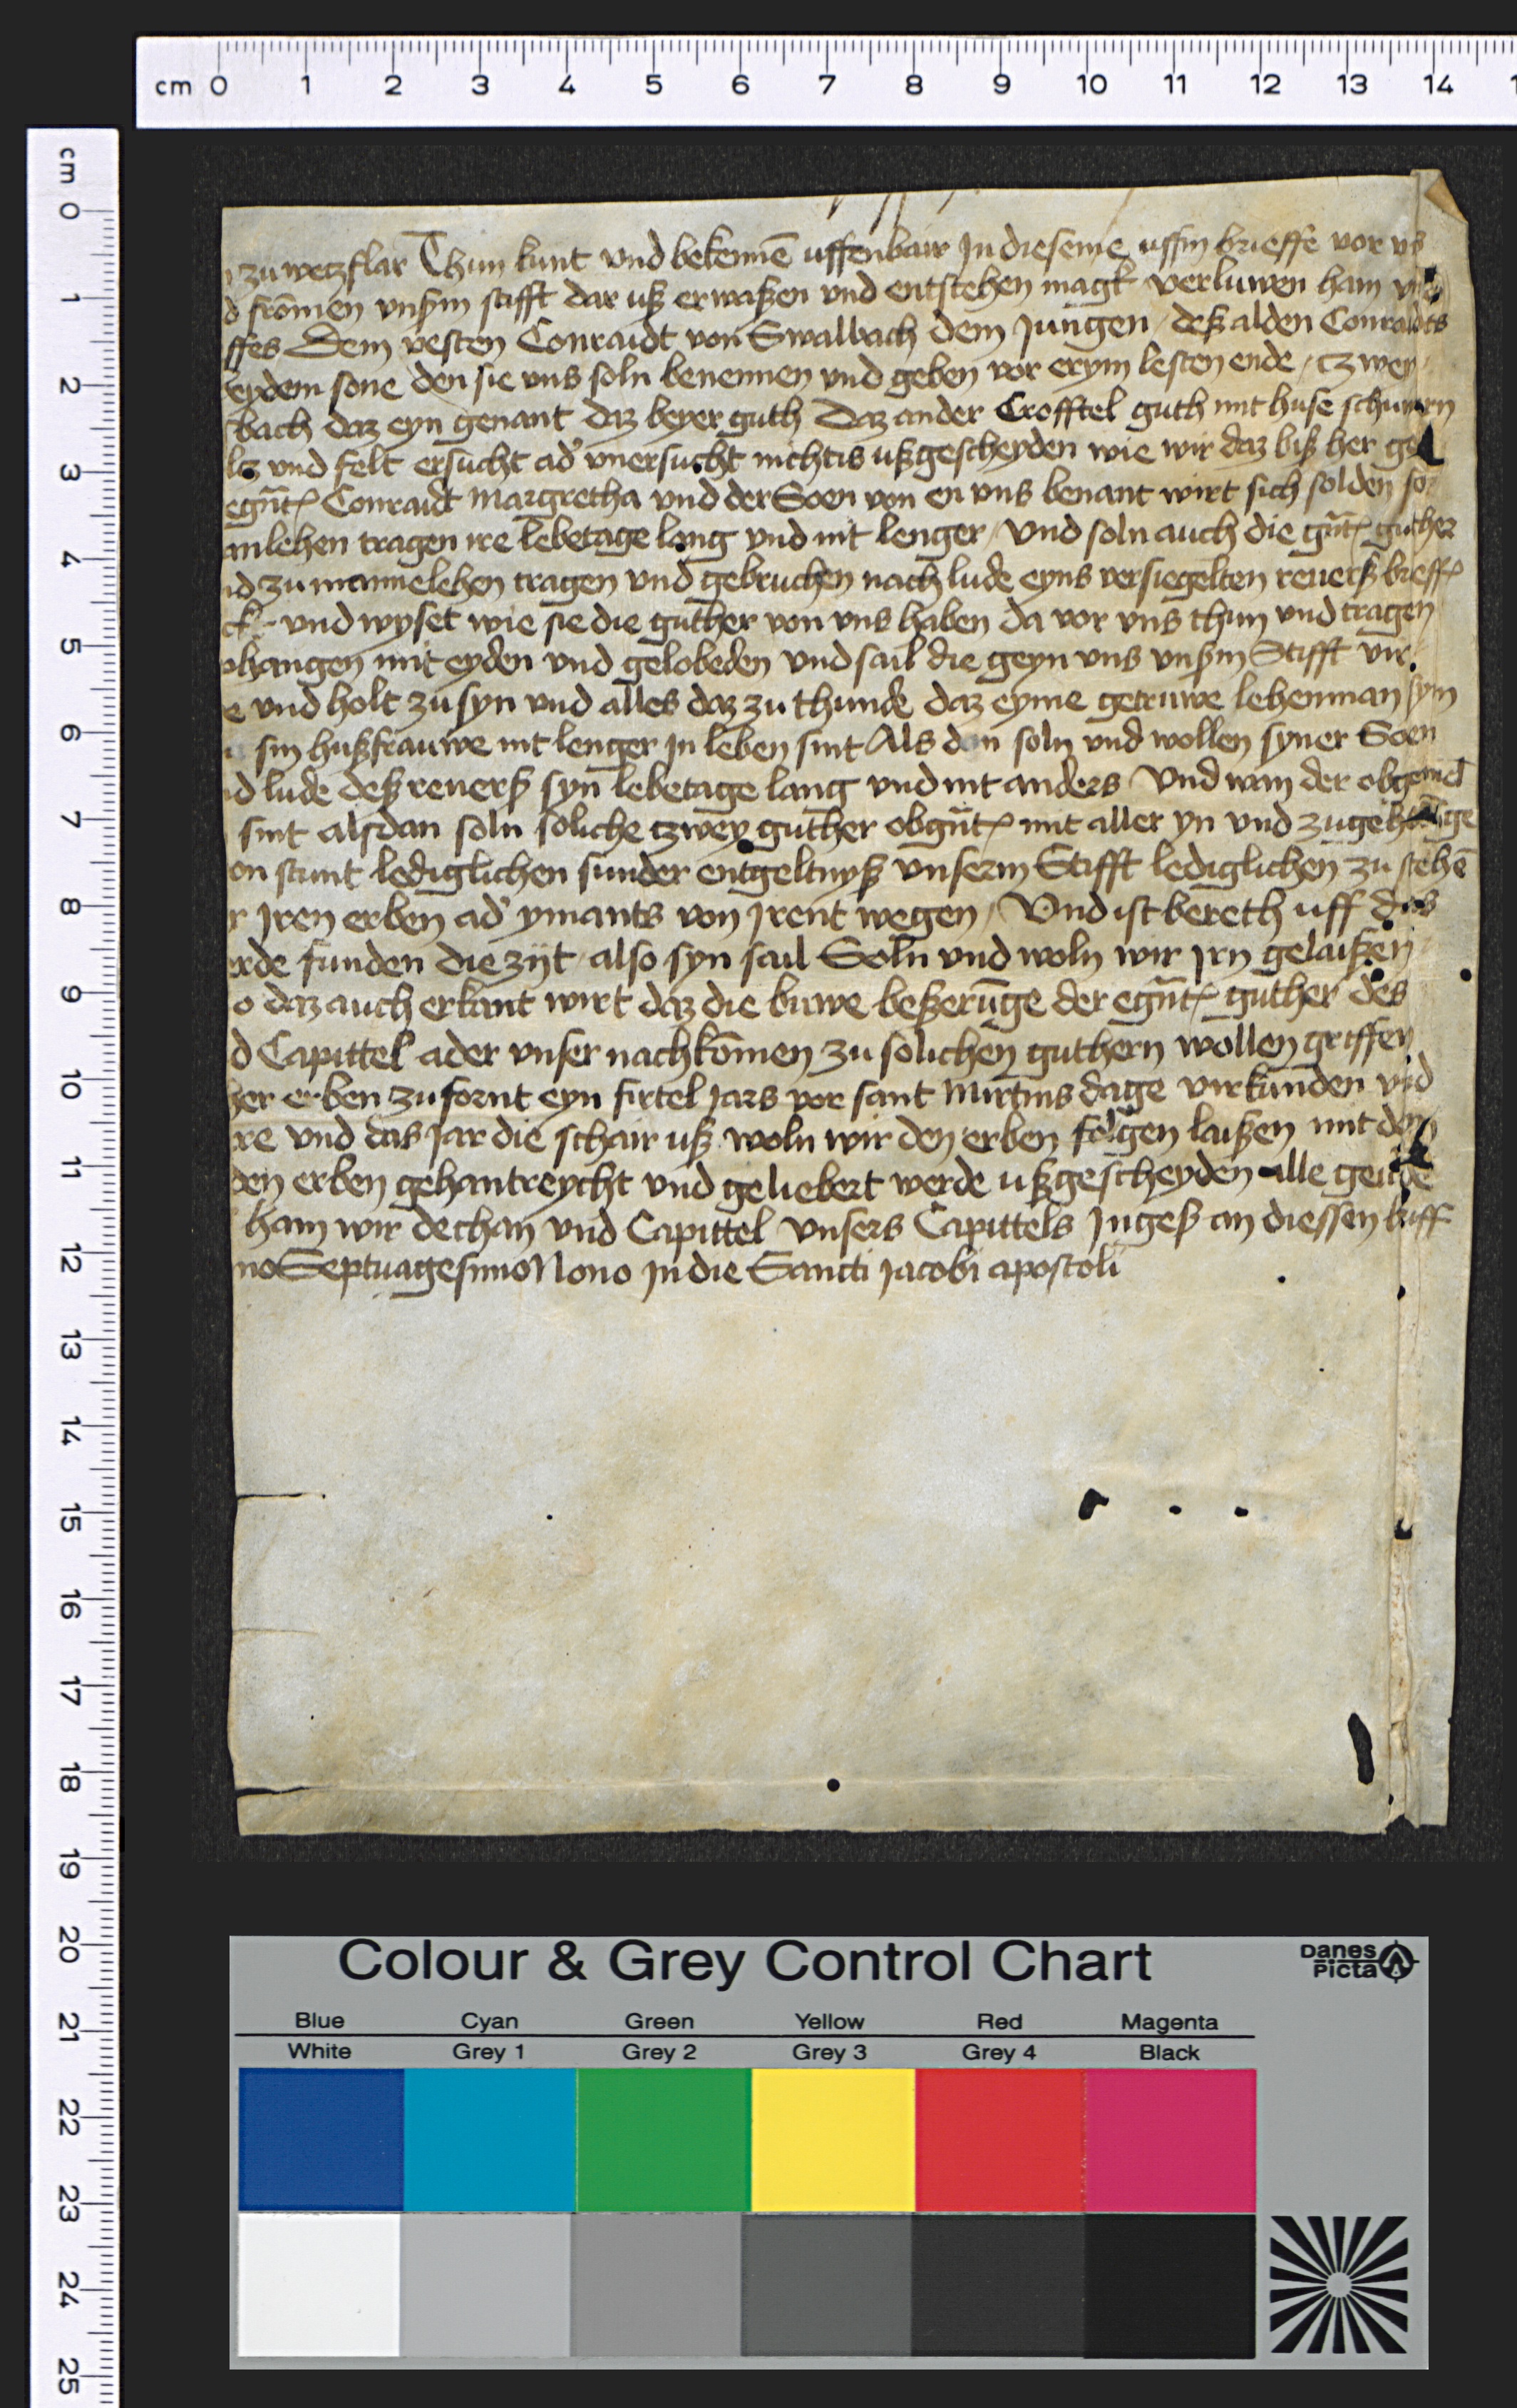 zu wetzflar Thun kunt vnd bekennē uffenbair In dieseme uffin brieffe vor vs
d frōmen vnßm stifft dar uß erwaßen vnd entstehen magk verluwen han
ffes Dem vesten Conraidt von Swalbach dem Jungen / deß alden Conraidts
eydem sone den sie vns soln benennen vnd geben vor erym lesten ende / tzwey
bach daz eyn genant daz beyer guth Daz ander Crofftel guth mit huse schuwrn
ltz vnd felt ersucht ad' vnersucht nichtis ußgescheyden wie wir daz biß her ge
egn̄t Conraidt Margretha vnd der Soen von en vns benant wirt sich solden so
mlehen tragen ire lebetage lang vnd nit lenger / Vnd soln auch die gn̄t guther
nd zu mannelehen tragen vnd gebruchen nach lude eyns versiegelten reuerß brieff
vnd wyset wie sie die guther von vns haben da vor vns thun vnd tragen
phangen mit eyden vnd gelobeden vnd sail die geyn vns vnßm Stifft vir
e vnd holt zu syn vnd alles daz zu thunde daz eyme getruwe lehenman sym
sin hußfrauwe nit lenger In leben sint Als dan soln vnd wollen syner Soen
nd lude deß reuerß syn lebetage lang vnd nit anders Vnd wan der obgemel
sint alsdan soln soliche tzwey guther obgn̄t mit aller yn vnd zugehorige
on stunt lediglichen sunder entgeltnyß vnserm Stifft lediglichen zu stehē
r Jren erben ad' ymants von Jrent wegen / Vnd ist bereth uff das
rde funden die zijt also syn sail Soln vnd woln wir Jrn gelaißen
o daz auch erkant wirt daz die buwe beßerūge der egn̄t guther des
d Capittel ader vnser nachkōmen zu solichen guthern wollen griffen
her erben zu fornt eyn firtel Jars vor sant Mirtins dage virkunden vnd
re vnd das Jar die schair uß woln wir den erben folgen laißen mit dem
den erben gehantreycht vnd geliebert werde ußgescheyden alle
han wir dechan vnd Capittel vnsers Capittels Jngeß an diessen briff
no Septuagesimo Nono In die Sancti Jacobi apostoli
cm 0 1 2 3 4 5 6 7 8 9 10 11 12 13 14 1
cm 0 1 2 3 4 5 6 7 8 9 10 11 12 13 14 15 16 17 18 19 20 21 22 23 24 25
Colour & Grey Control Chart
Danes
Picta
Blue Cyan Green Yellow Red Magenta
White Grey 1 Grey 2 Grey 3 Grey 4 Black